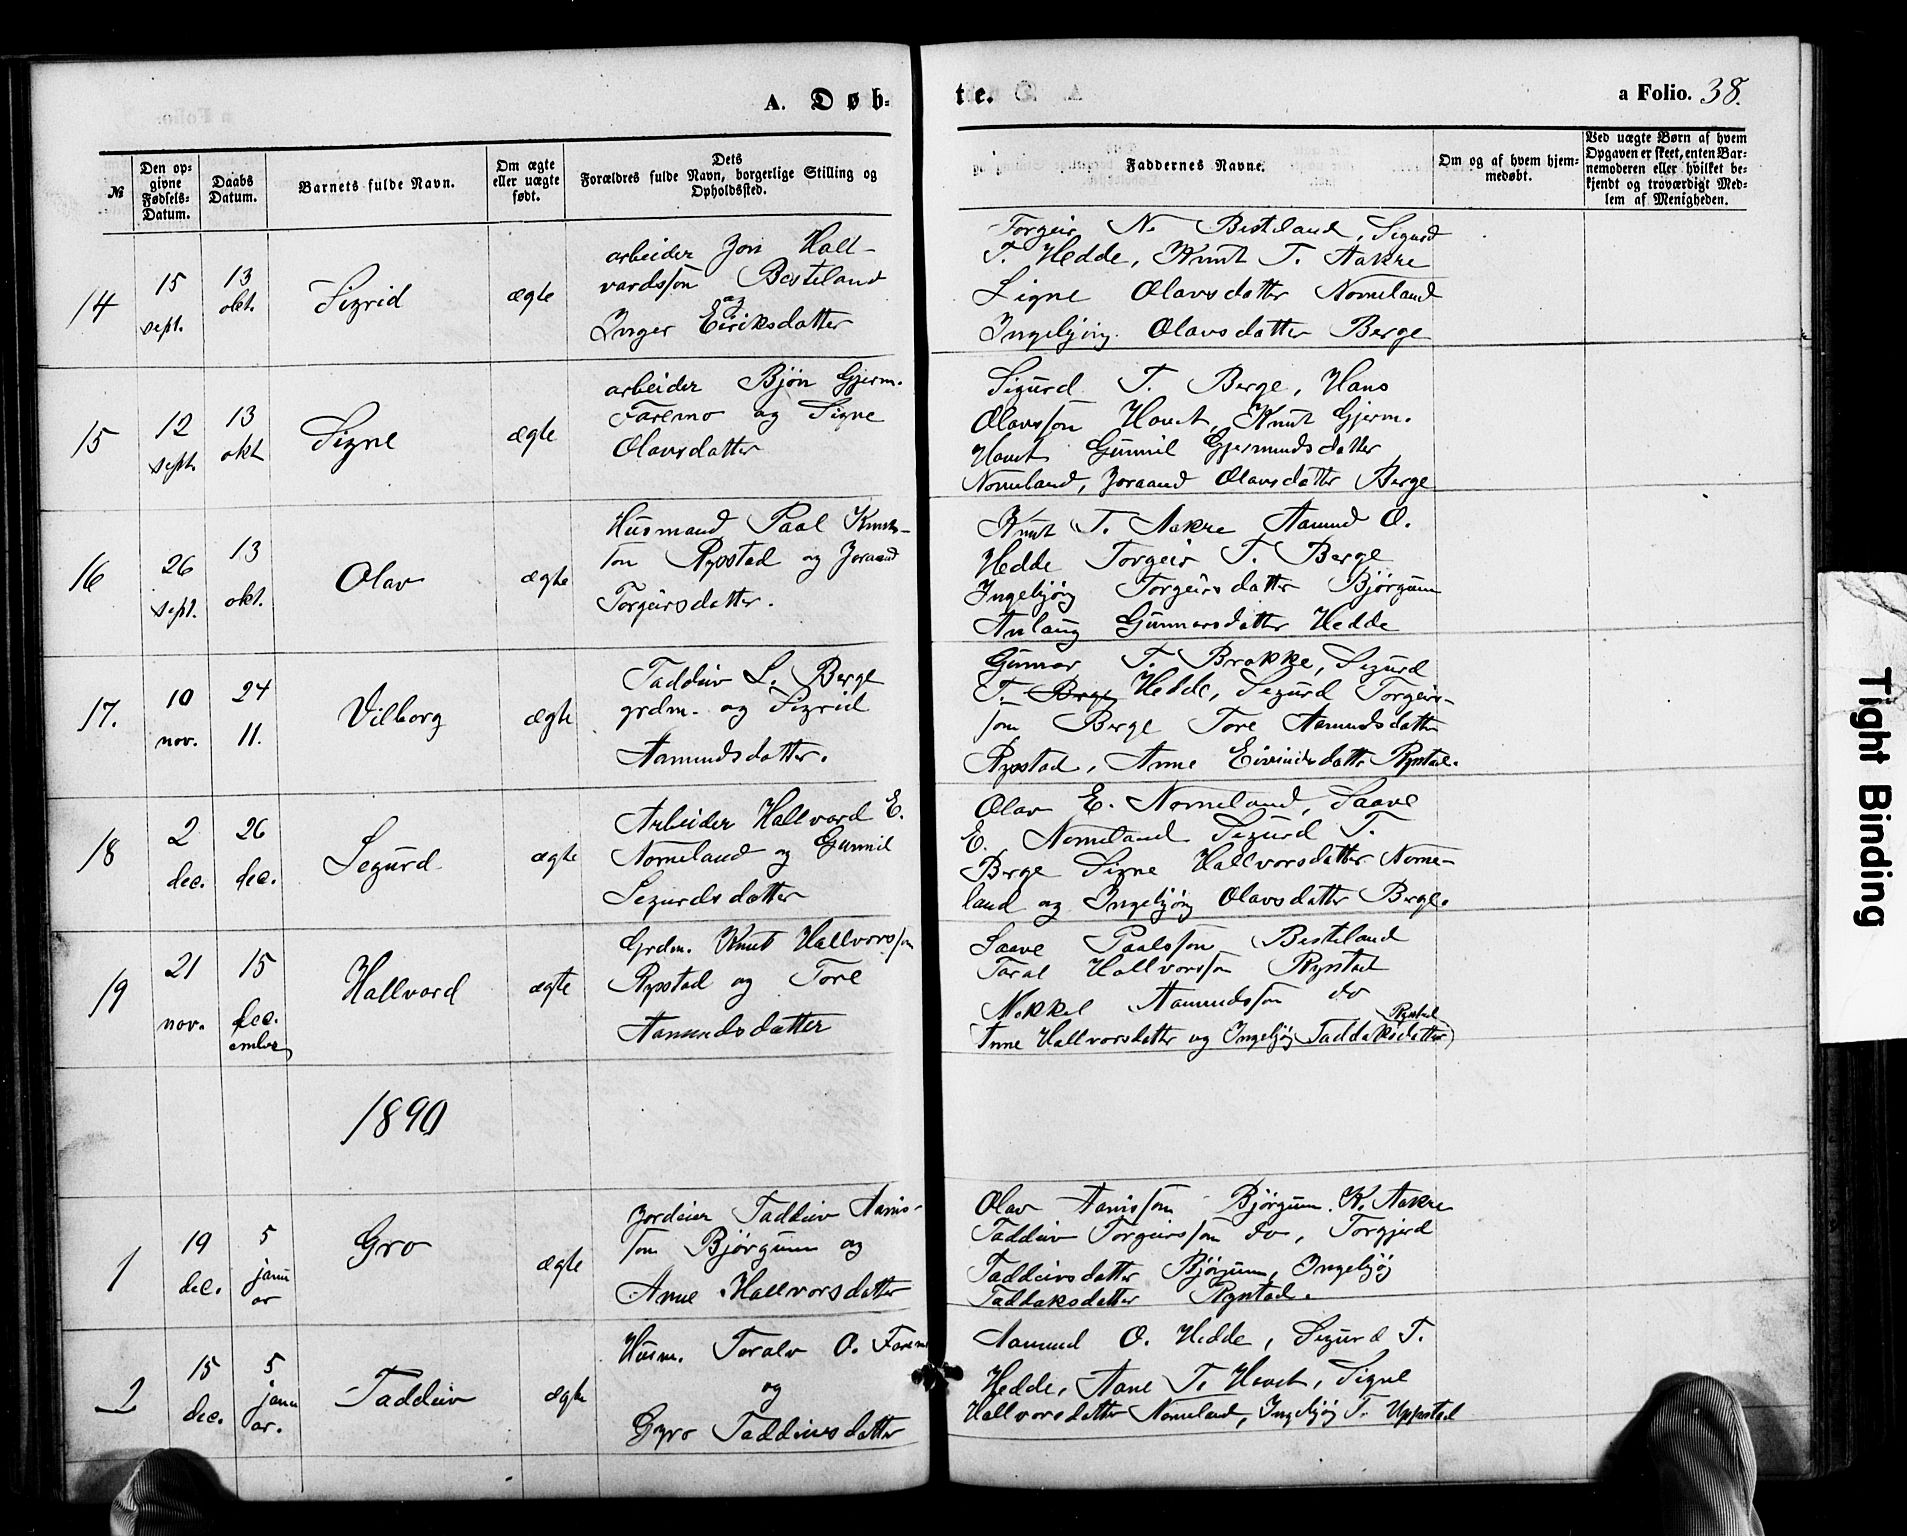 A. Døb-
te.
a Folio. 38.
№
Den op-
givne
Fødsels-
Datum.
Daabs
Datum.
Barnets fulde Navn.
Om ægte
eller uægte
født.
Dets
Forældres fulde Navn, borgerlige Stilling og
Opholdssted.
Faddernes Navne.
Om og af hvem hjem-
medøbt.
Ved uægte Børn af hvem
Opgaven er skeet, enten Bar-
nemoderen eller hvilket be-
kjendt og troværdigt Med-
lem af Menigheden.
14
15
sept.
13
okt.
Sigrid
ægte
arbeider Jon Hall-
vardsson Besteland
og
Inger Eiriksdatter
Torgeir N. Besteland, Sigurd
T. Hedde, Knut T. Aakre
Signe Olavsdatter Nomeland
Ingebjørg Olavsdatter Berge
15
12
sept.
13
okt
Signe
ægte
arbeider Bjøn Gjerm.
Faremo og Signe
Olavsdatter
Sigurd T. Berge, Hans
Olavsson Hovet, Knut Gjerm.
Hovet Gunnil Gjermundsdatter
Nomeland, Joraand Olavsdatter Berge
16
26
sept.
13
okt.
Olav
ægte
Husmand Paal Knuts-
son Rysstad og Joraand
Torgeirsdatter.
Knut T. Aakre Aamund O.
Hedde Torgeir T. Berge
Ingebjørg Torgeirsdatter Bjørgum
Anlaug Gunnarsdatter Hedde
17.
10
nov.
24
11.
Vilborg
ægte
Taddeiv L. Berge
grdm. og Sigrid
Aamundsdatter.
Gunnar T. Brokke, Sigurd
T. Berge Hedde, Sigurd Torgeirs-
son Berge Tore Aamundsdatter
Rysstad, Anne Eivindsdatter Rystad.
18
2
dec.
26
dec.
Segurd
ægte
Arbeider Hallvard E.
Nomeland og Gunnil
Segurdsdatter
Olav E. Nomeland, Saave
E. Nomeland Segurd T.
Berge Signe Hallvorsdatter Nome-
land og Ingebjørg Olavsdatter Berge.
19
21
nov.
15
dec.
ember
Hallvard
ægte
Grdm. Knut Hallvorsson
Rysstad og Tore
Aamundsdatter
Saave Paalsson Besteland
Taral Hallvorsson Rystad
Mikkel Aamundsson do
Rystad
Anne Hallvorsdatter og Ingebjørg Taddaksdatter
1890
1
19
dec.
5
janu
ar
Gro
ægte
Jordeier Taddeiv Aanis-
son Bjørgum og
Anne Hallvorsdatter
Olav Aanisson Bjørgum. K. Aakre
Taddeiv Torgeirsson do, Torgjerd
Taddeivsdatter Bjørgum, Ingebjørg
Taddaksdatter Rystad.
2
15
dec.
5
janu
ar.
Taddeiv
ægte
Husm. Toralv O. Faremo
og
Gyro Taddeivsdatter
Aamund O. Hedde, Sigurd T.
Hedde, Aane T. Hovet, Signe
Hallvorsdatter Nomeland, Ingebjørg T. Uppstad
Tight Binding